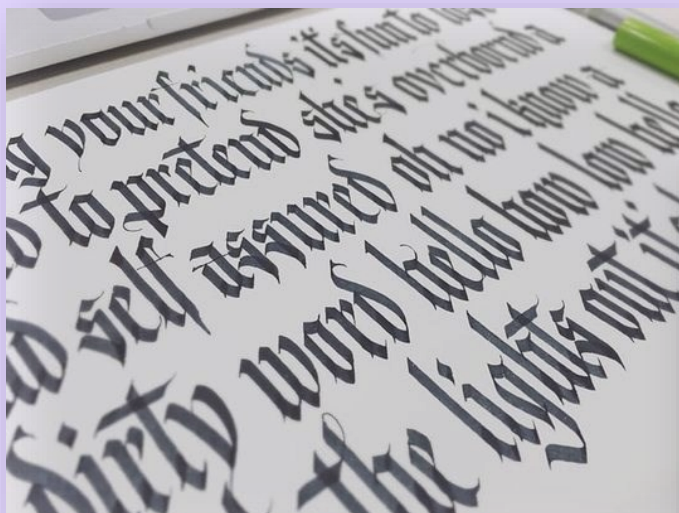 g your friends it's fun to
to pretend she's overboard a
self assured oh no i know a
dirty word hello how low hello
the lights out it